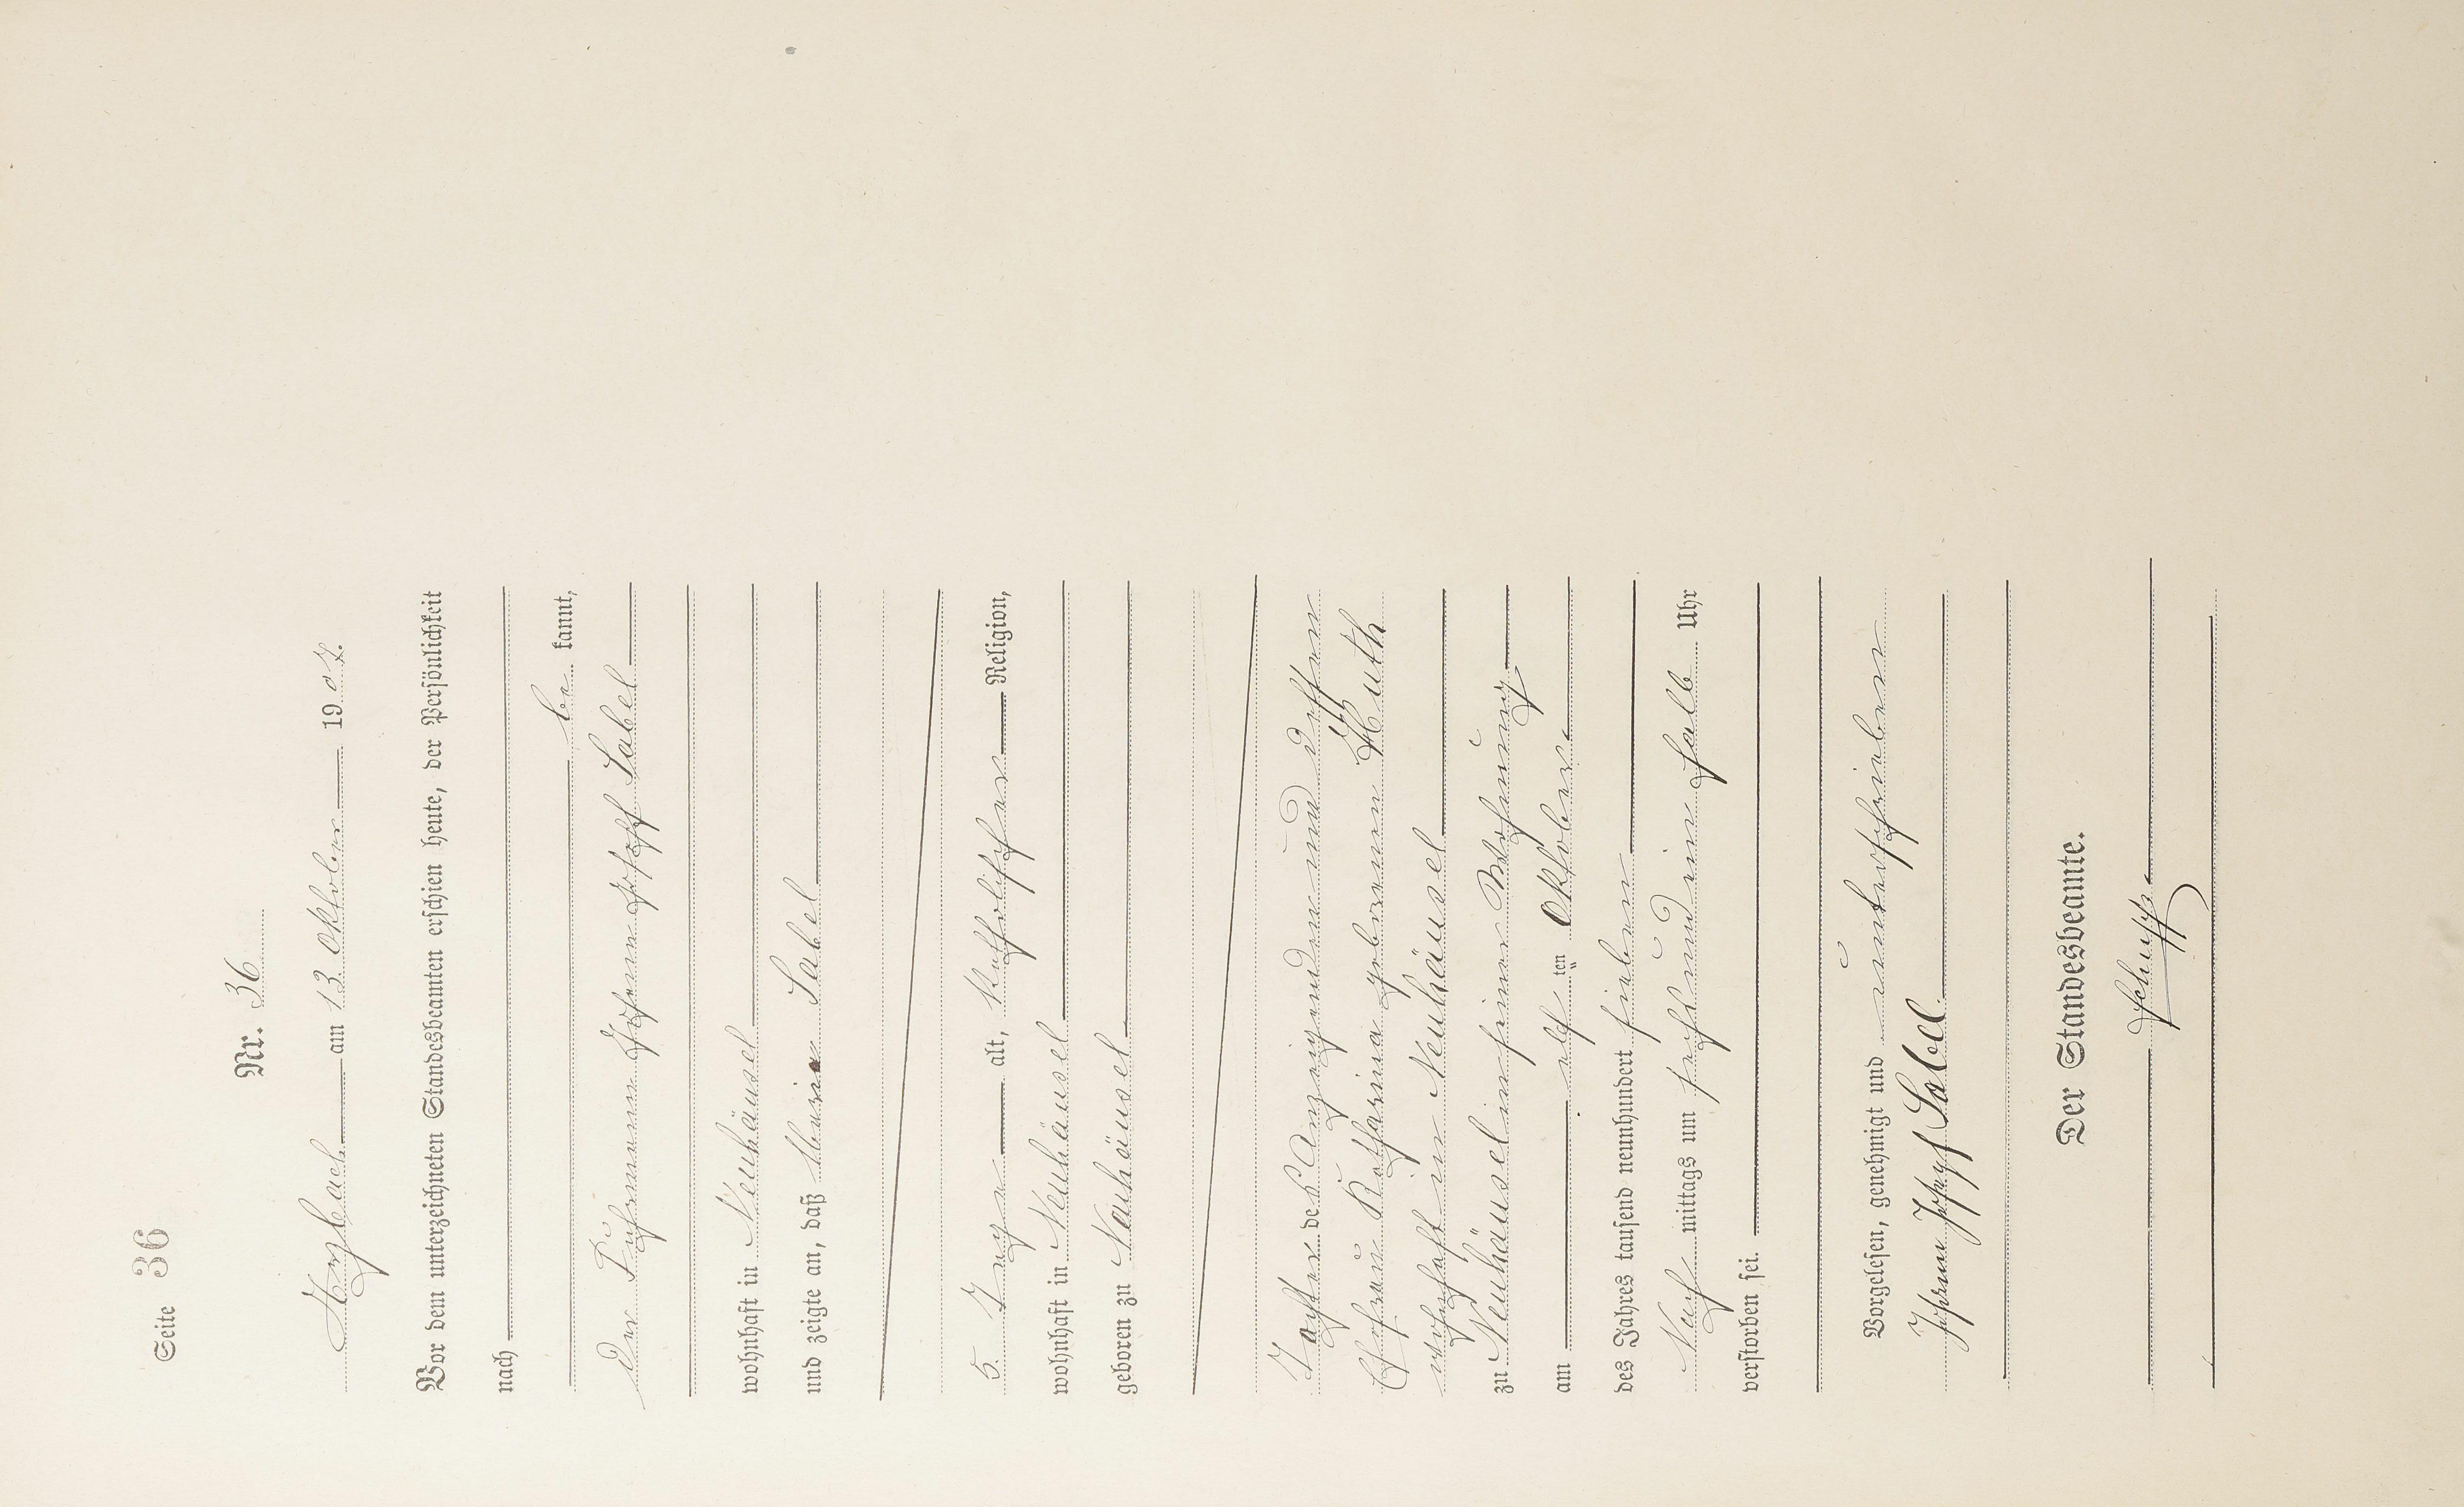 Seite 36
Nr. 36
Arzbach am 13. Oktober 1907.
Vor dem unterzeichneten Standesbeamten erschien heute, der Persönlichkeit
nach
be kannt,
der Fuhrmann Johann Josef Sabel
wohnhaft in Neuhäusel
und zeigte an, daß Maria Sabel
5 Tage alt, katholischer Religion,
wohnhaft in Neuhäusel
geboren zu Neuhäusel
Tochter des Anzeigenden und dessen
Ehefrau Katharina geborenen Huth
wohnhaft in Neuhäusel
zu Neuhäusel in seiner Wohnung
am elf ten Oktober
des Jahres tausend neunhundert sieben
Nach mittags um sechs und ein halb Uhr
verstorben sei.
Vorgelesen, genehmigt und unterschrieben
Johann Joseph Sabel
Der Standesbeamte.